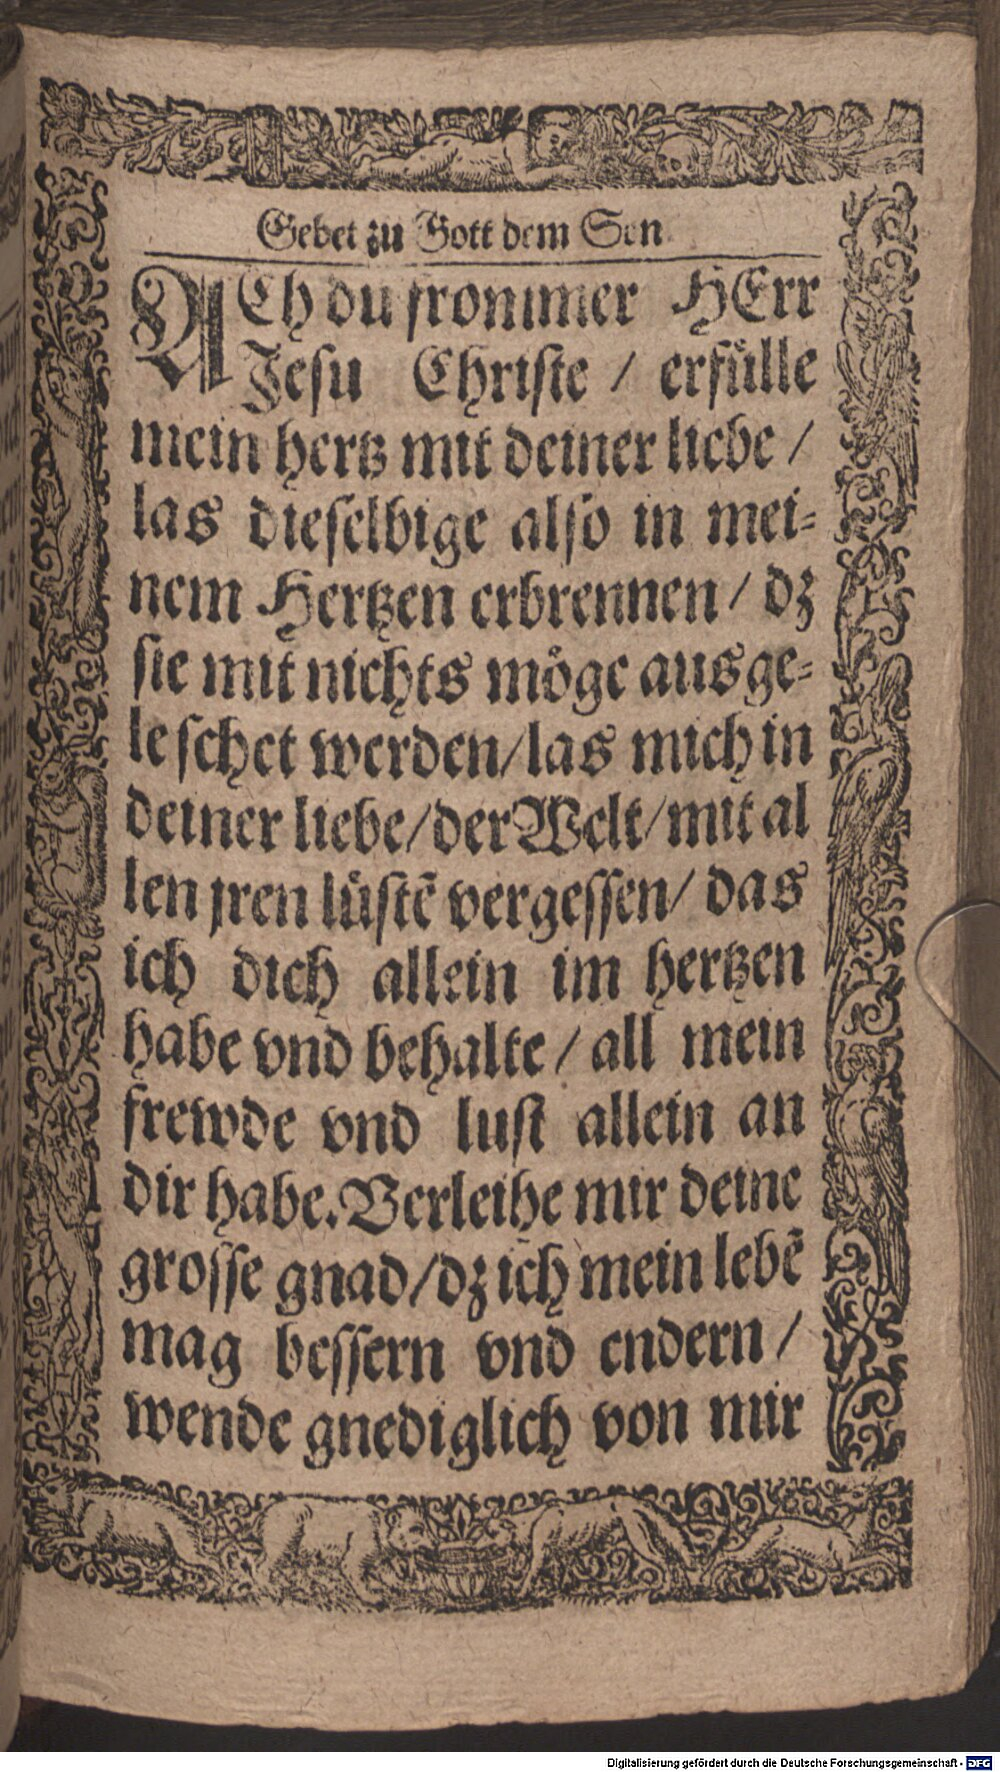 Gebet zu Gott dem Son
ACh du frommer HErr
Jesu Christe / erfülle
mein hertz mit deiner liebe /
las dieselbige also in mei-
nem Hertzen erbrennen / dz
sie mit nichts möge ausge-
leschet werden/las mich in
deiner liebe/der Welt/mit al
len jren lüstẽ vergessen/ das
ich dich allein im hertzen
habe vnd behalte / all mein
frewde vnd lust allein an
dir habe. Verleihe mir deine
grosse gnad/dz ich mein lebẽ
mag bessern vnd endern /
wende gnediglich von mir
Digitalisierung gefördert durch die Deutsche Forschungsgemeinschaft - DFG